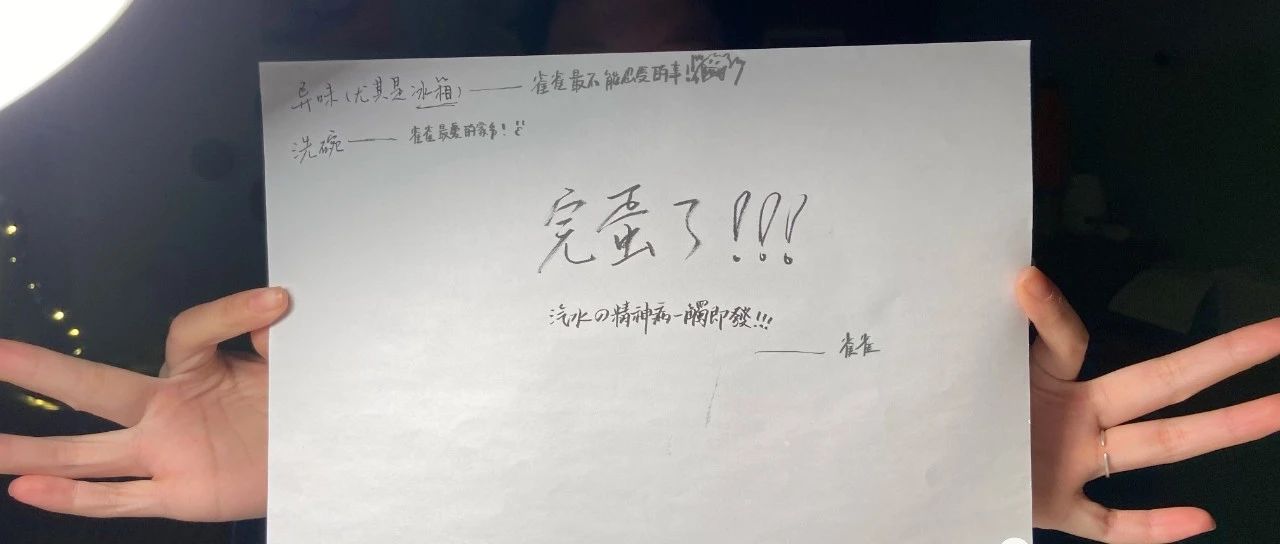 异味(尤其是冰箱)——雀雀最不能忍受的事!
洗碗——雀雀最爱的家务!
完蛋了!!!
汽水の精神病一觸即發!!!
——雀雀